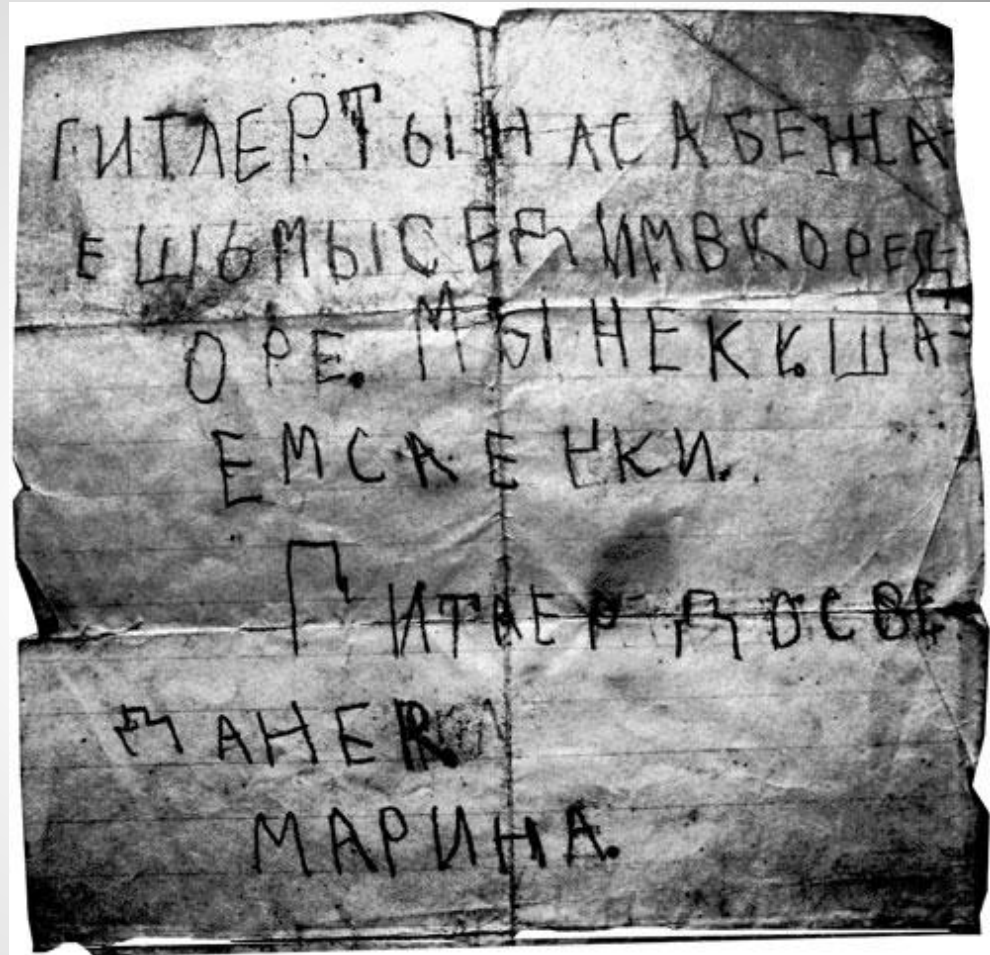 ГИТЛЕРТЫНАСАБЕЖА-
ЕШЬМЫСЕДИМВКОРЕД-
ОРЕ. МЫНЕККША-
ЕМСАЕЧКИ.
ГИТЛЕР ДОСВЕ
ДАНЕЯ
МАРИНА.